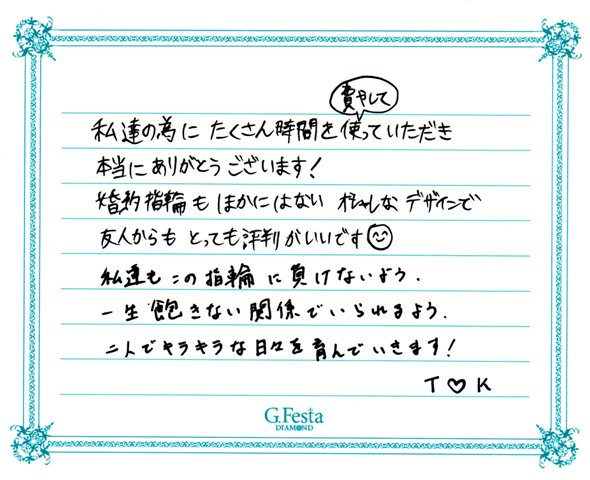 費やして
私達の為に たくさん時間を使っていただき
本当にありがとうございます!
婚約指輪も ほかにはない オシャレな デザインで
友人からも とっても評判がいいです
私達も この指輪に負けないよう.
一生飽きない関係でいられるよう.
二人でキラキラな日々を育んでいきます!
T♡K
G.Festa
DIAMOND